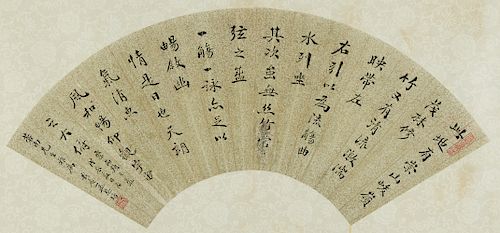 此地有崇山峻嶺
茂林修
竹又有清流激湍
映帶左
右引以為流觴曲
水列坐
其次雖無絲竹管
弦之盛
一觴一詠亦足以
暢敘幽
情是日也天朗
氣清惠
風和暢仰觀宇宙
之大俯